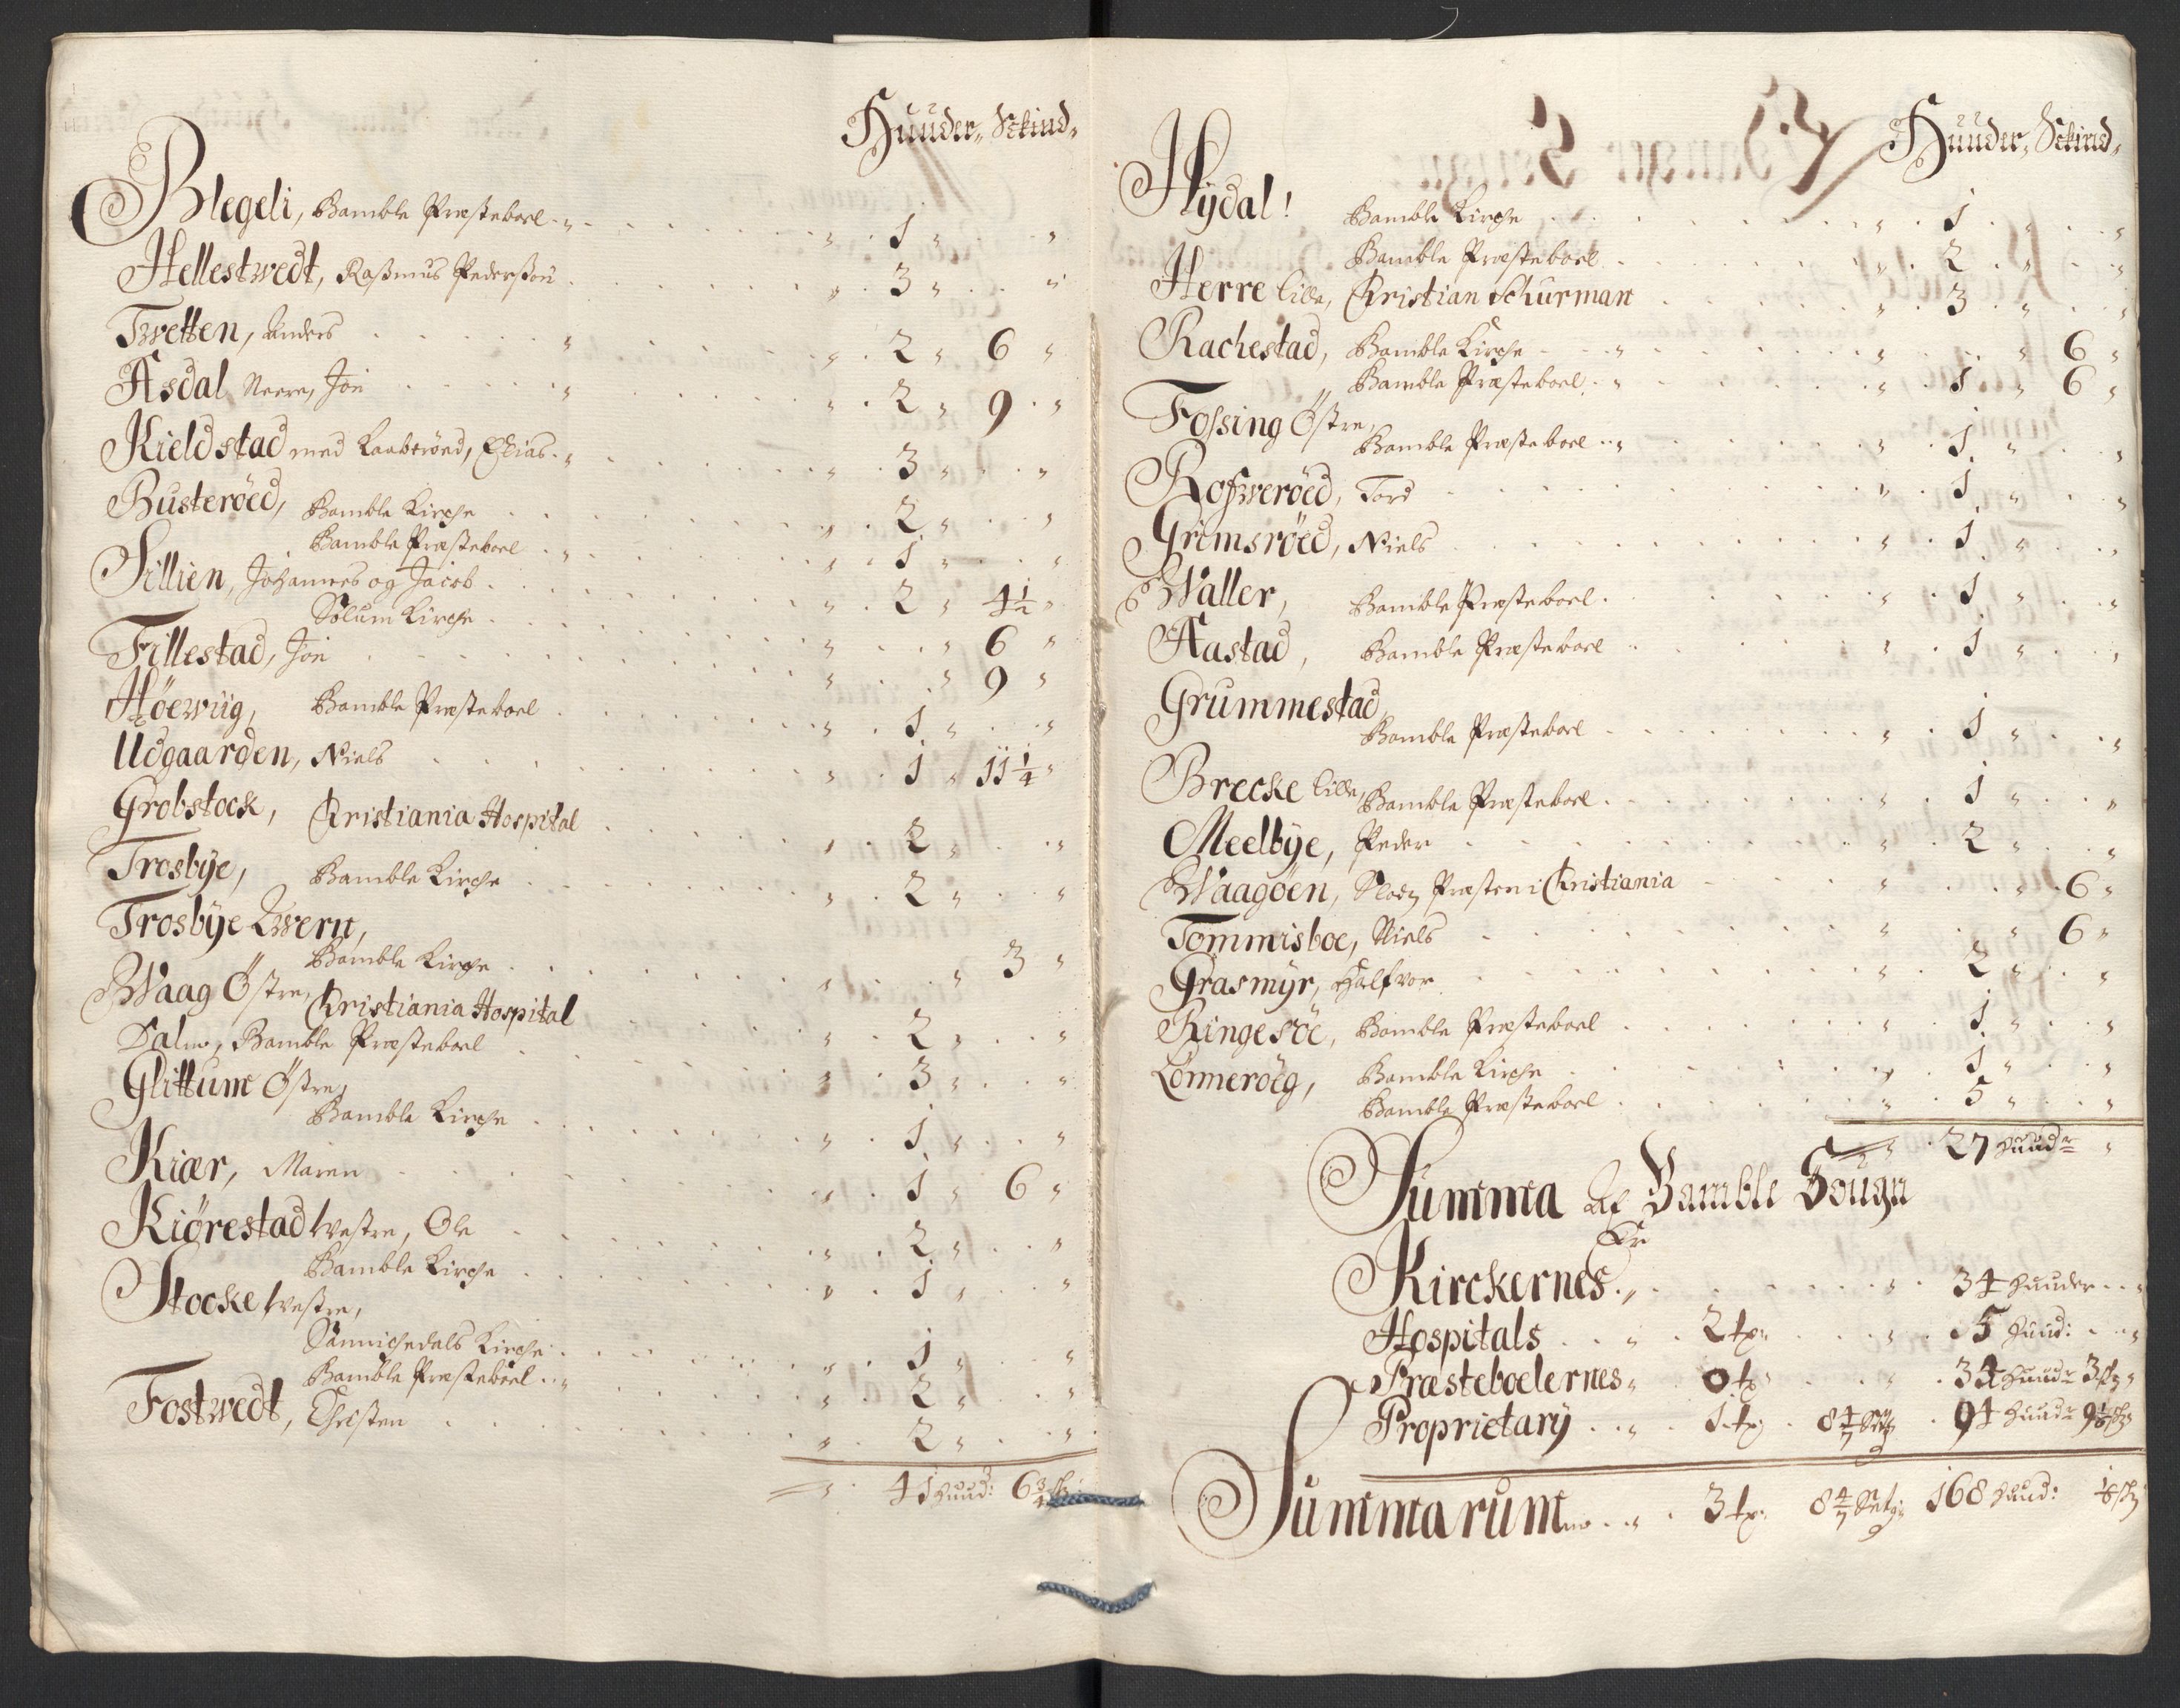 Huuder, Skind,
Blegeli, Bamble Præsteboel 1
Hellestwedt, Rasmus Pederssøn 3
Twetten, Anders 2 6
Aasdal Neere, Jon 2 9
Kieldstad med Laaberöed, Elias 3
Busteröed, Bamble Kirche 2
Bamble Præsteboel 1
Sillien, Johannes og Jacob 2 4 1/2
Solum Kirche 6
Fillestad, Jon 9
Höewiig, Bamble Præsteboel 1
Udgaarden, Niels 1 11 1/4
Grobstock, Christiania Hospital 2
Trosbÿe, Bamble Kirche 2
Trosbÿe Qwern,
Bamble Kirche 3
Waag Östre, Christiania Hospital 2
Dalene, Bamble Præsteboel 3
Glittum Östre,
Bamble Kirche 1
Kiær, Maren 1 6
Kiörestad Westre, Ole 2
Bamble Kirche 1
Stocke Westre,
Sannichedals Kirche 1
Bamble Præsteboel 2
Fostwedt, Christen 2
41 Huud: 6 3/4 sk:
Huuder, Skind,
Hÿdal! Bamble Kirche 1
Bamble Præsteboel 2
Herre lille, Christian Schurman 3
Rachestad, Bamble Kirche 6
Bamble Præsteboel 1 6
Fossing Östre,
Bamble Præsteboel 1
Rosweröed, Tord 1
Grimsröed, Niels 1
Waller, Bamble Præsteboel 1
Aastad, Bamble Præsteboel 1
Grummestad,
Bamble Præsteboel 1
Brecke lille, Bamble Præsteboel 1
Meelbÿe, Peder 2
Waagöen, Slodz Præsten i Christiania 6
Tommisboe, Niels 6
Grasmÿr, Halfvor 2
Ringesöe, Bamble Præsteboel 1
Lönneröeg, Bamble Kirche 1
Bamble Præsteboel 5
27 Huudr
Summa Af Bamble Sougn
Er
Kirckernes 34 Huuder
Hospitals 2 tp: 5 Huud:
Præsteboelernes 0 tp: 34 Huudr 3 sk
Proprietarÿ 1 tp: 8 4/7 Setg 94 Huudr 9 1/6 sk
Summarum 3 tp: 8 4/7 Setg: 168 Huud: 1/6 sk